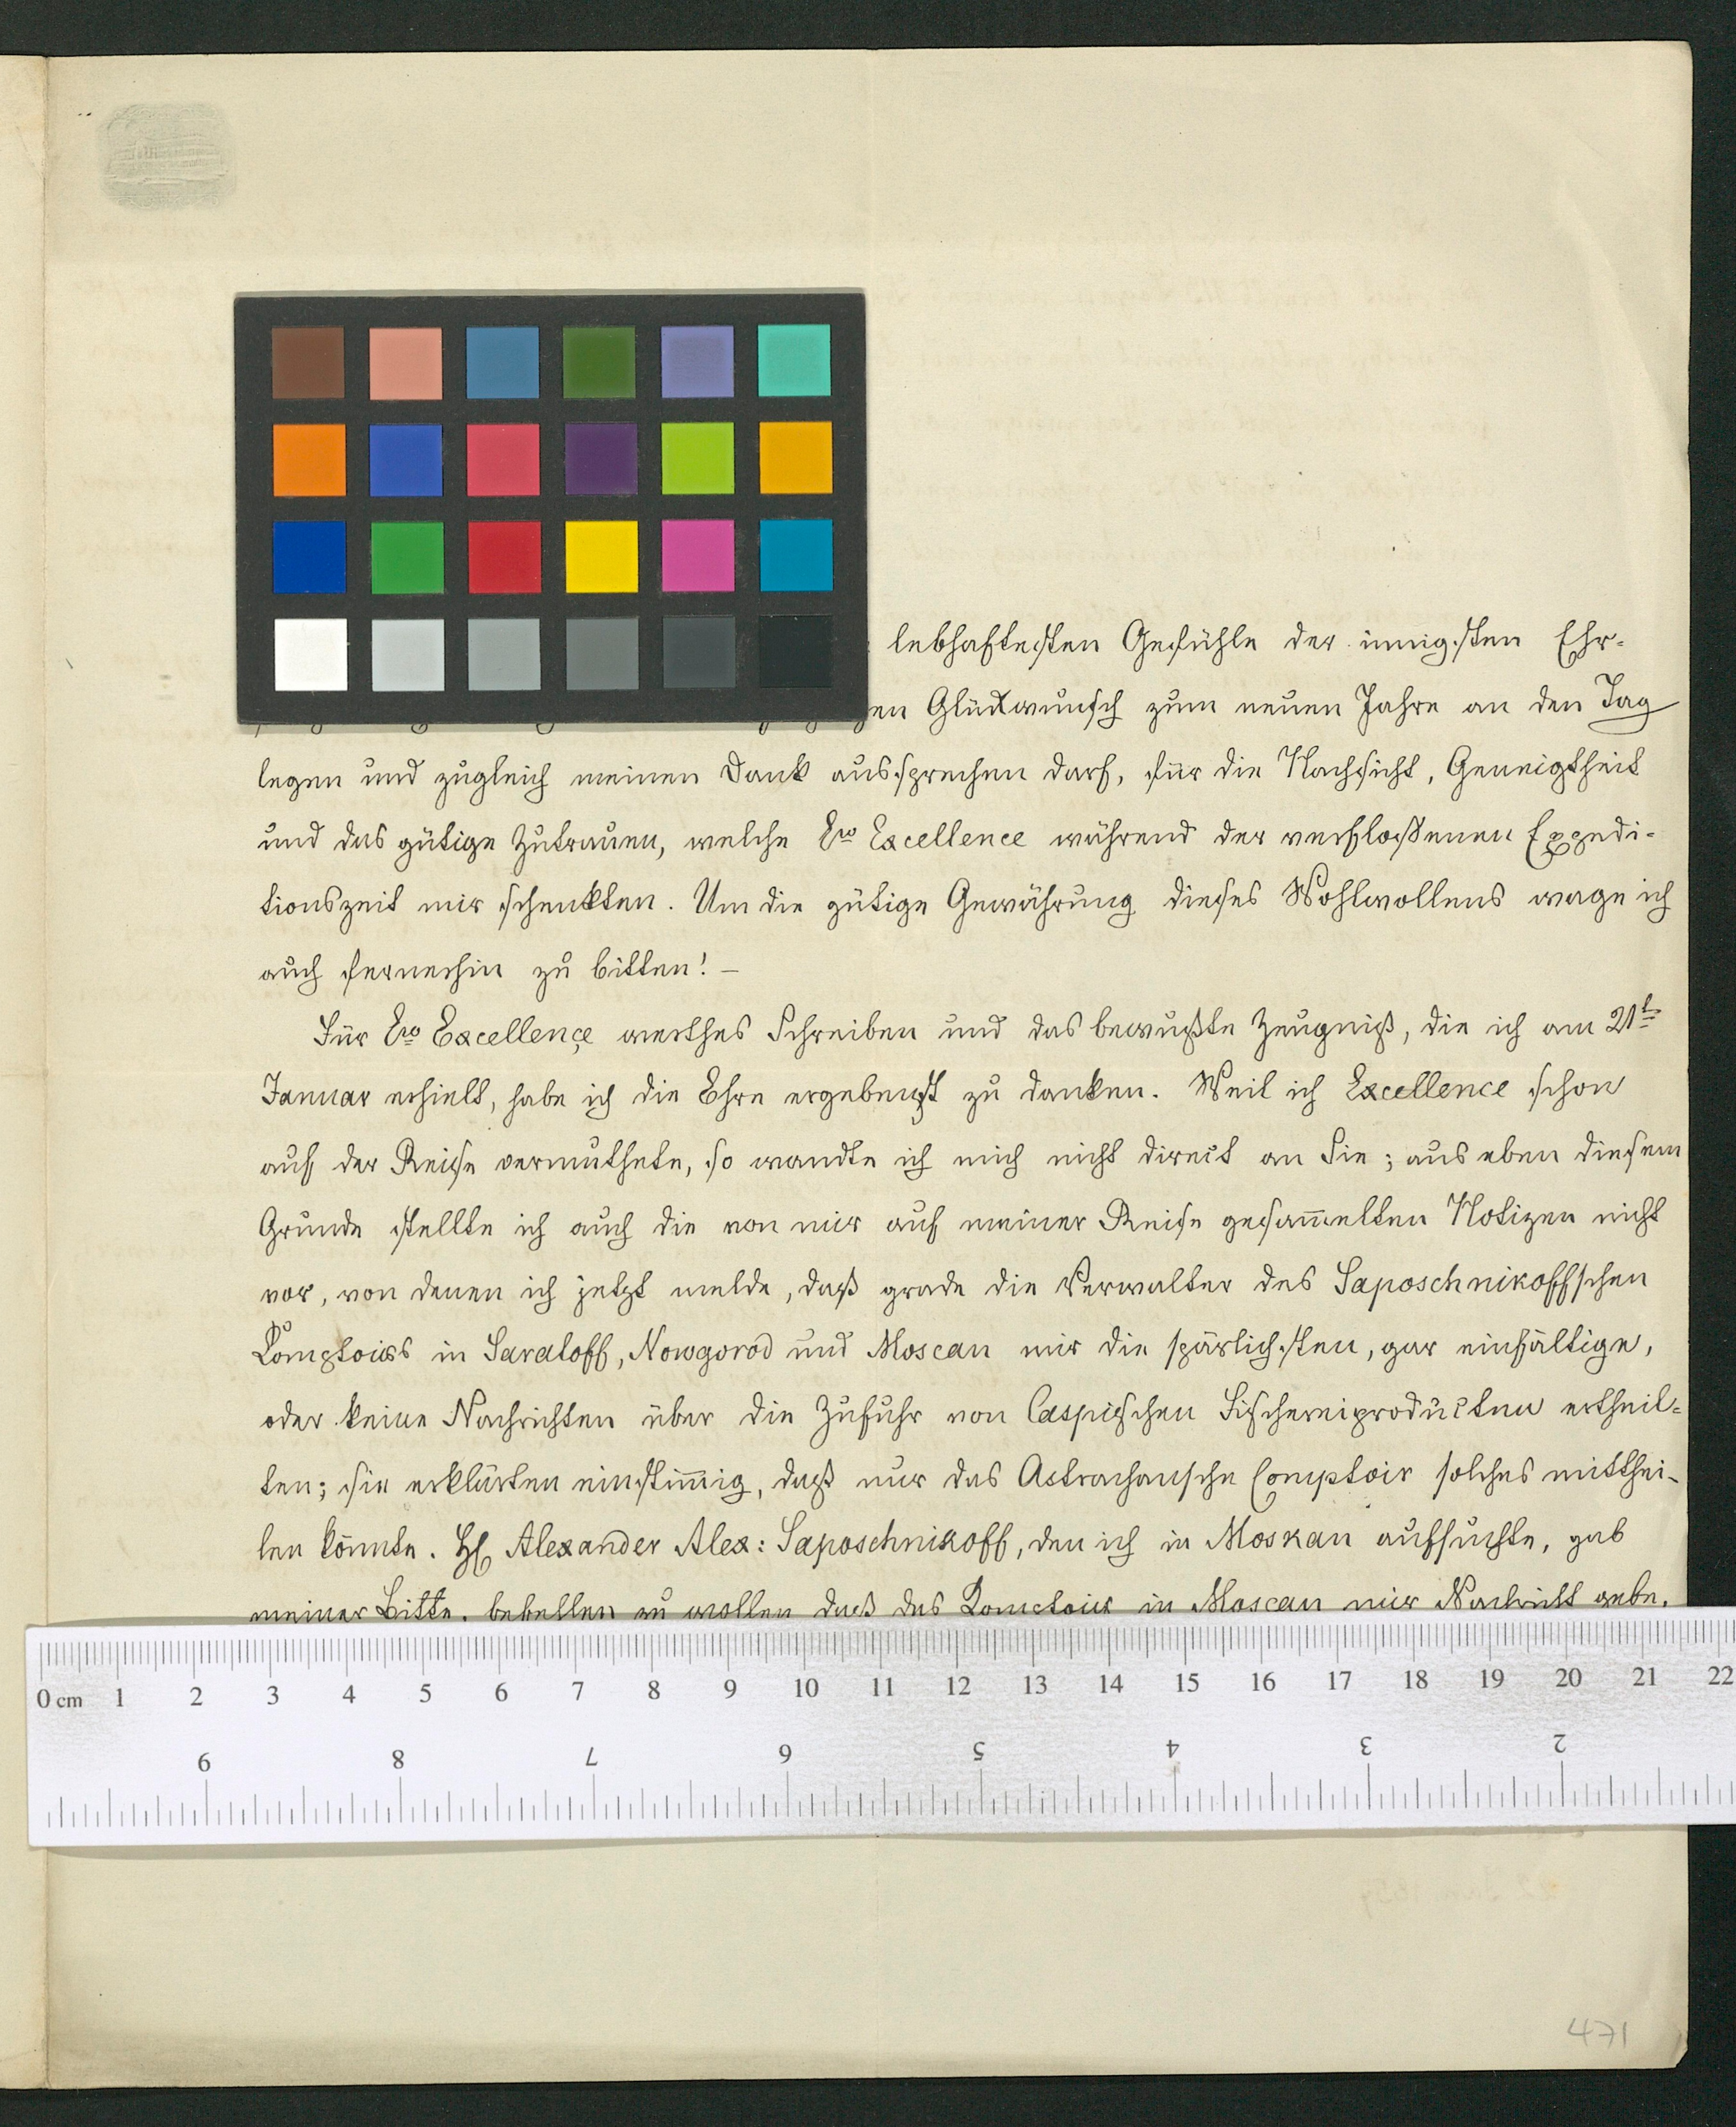 lebhaftesten Gefühle der innigsten Ehr-
Glückwunsch zum neuen Jahre an den Tag
legen und zugleich meinen Dank aussprechen darf, für die Nachsicht, Geneigtheit
und das gütige Zutrauen, welche Ew Excellence während der verfloßenen Expedi-
tionszeit mir schenkten. Um die gütige Gewährung dieses Wohlwollens wage ich
auch fernerhin zu bitten! –
Für Ew Excellençe werthes Schreiben und das bewußte Zeugniß, die ich am 21t
Januar erhielt, habe ich die Ehre ergebenst zu danken. Weil ich Excellence schon
auf der Reise vermuthete, so wandte ich mich nicht direct an Sie; aus eben diesem
Grunde stellte ich auch die von mir auf meiner Reise gesam̅elten Notizen nicht
vor, von denen ich jetzt melde, daß grade die Verwalter des Saposchnikoffschen
Comptoirs in Saratoff, Nowgorod und Moscau mir die spärlichsten, gar einfältige,
oder keine Nachrichten über die Zufuhr von Caspischen Fischereiproducten ertheil-
ten; sie erklärten einstim̅ig, daß nur das Astrachansche Comptoir solches mitthei-
len könnte. H Alexander Alex: Saposchnikoff, den ich in Moskau aufsuchte, gab
meiner Bitte, befehlen zu wollen daß das Comptoir in Moscau mir Nachricht gebe,
0 cm 1 2 3 4 5 6 7 8 9 10 11 12 13 14 15 16 17 18 19 20 21 22
9 8 7 6 5 4 3 2
471